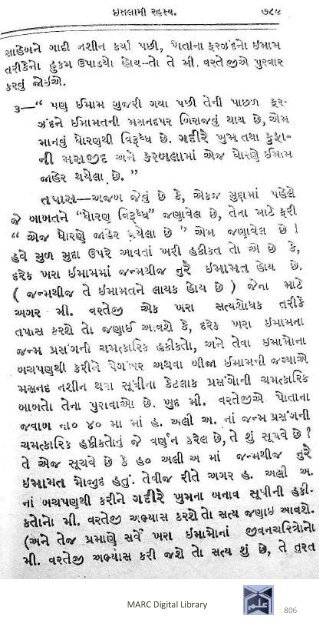 ઇસલામી રહસ્ય. ૭૮૫
સાહેબને ગાદી નશીન કર્યા પછી, પોતાના ફરગંદનો ઈમામ
તરીકેનો હુકમ ઉપાડયો હોય—તો તે મી. વરતેજીએ પુરવાર
કરવું જોઈએ.
૩—“ પણ ઈમામ ગુજરી ગયા પછી તેની પાછળ ફર-
ગંદને ઈમામતની મસનદપર બિરાજવું થાય છે, એમ
માનવું ધોરણથી વિરૂધ્ધ છે. ગદીરે ખુમ તથા કુફા-
ની મસજીદ અને કરબલામાં એજ ધોરણે ઈમામ
જાહેર થયેલા છે. ”
તપાસ—અજબ જેવું છે કે, એકજ સુદામાં પહેલી
જે બાબતને “ધોરણ વિરૂધ્ધ” જણાવેલ છે, તેના માટે ફરી
“ એજ ધોરણે જાહેર થયેલા છે ” એમ જણાવેલ છે !
હવે મુળ મુદા ઉપર આવતાં ખરી હકીકત તો એ છે કે,
દરેક ખરા ઈમામમાં જન્મથીજ નુરે ઈમામત હોય છે.
( જન્મથીજ તે ઈમામતને લાયક હોય છે ) જેના માટે
અગર મી. વરતેજી એક ખરા સત્યશોધક તરીકે
તપાસ કરશે તો જણાઈ આવશે કે, દરેક ખરા ઈમામના
જન્મ પ્રસંગની ચમત્કારિક હકીકતો, અને તેવા ઈમામોના
બચપણથી કરીને પેગંબર અથવા બીજા ઈમામની જગ્યાએ
મસનદ નશીન થયા સુધીના કેટલાક પ્રસંગોની ચમત્કારિક
બાબતો તેના પુરાવાઓ છે. ખુદ મી. વરતેજીએ પોતાના
જવાબ ના૦ ૪૦ મા માં હ. અલી અ. નાં જન્મ પ્રસંગની
ચમત્કારિક હકીકતોનું જે વર્ણન કરેલ છે, તે શું સૂચવે છે !
તે એજ સૂચવે છે કે હ૦ અલી અ માં જન્મથીજ નુરે
ઈમામત મોજીદ હતું. તેવીજ રીતે અગર હ. અલી અ.
નાં બચપણથી કરીને ગદીરે ખુમના બનાવ સૂધીની હકી-
કતોનો મી. વરતેજી અભ્યાસ કરશે તો સત્ય જણાઈ આવશે.
(અને તેજ પ્રમાણે સર્વે ખરા ઈમામોનાં જીવનચરિત્રોનો
મી. વરતેજી અભ્યાસ કરી જશે તો સત્ય શું છે, તે તરત
MARC Digital Library
806